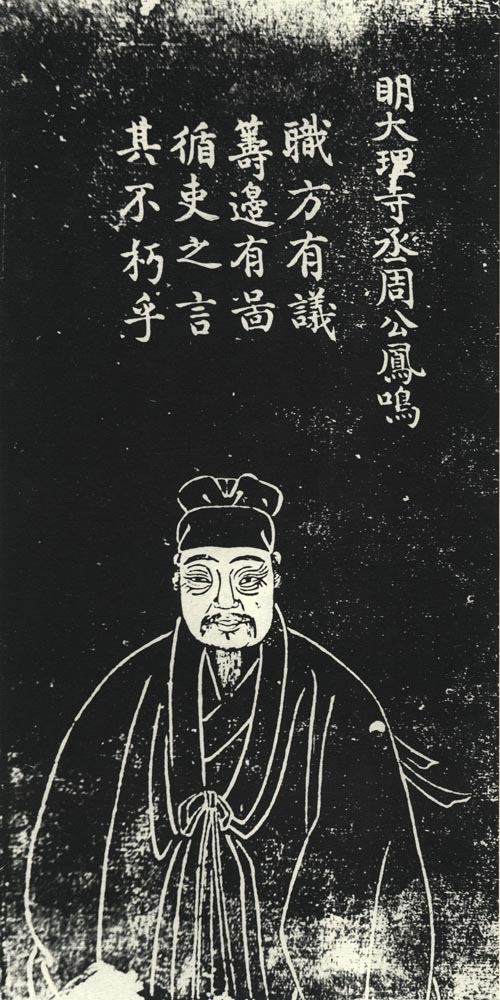 明大理寺丞周公鳳鳴
職方有議
籌邊有啚
循吏之言
其不朽乎